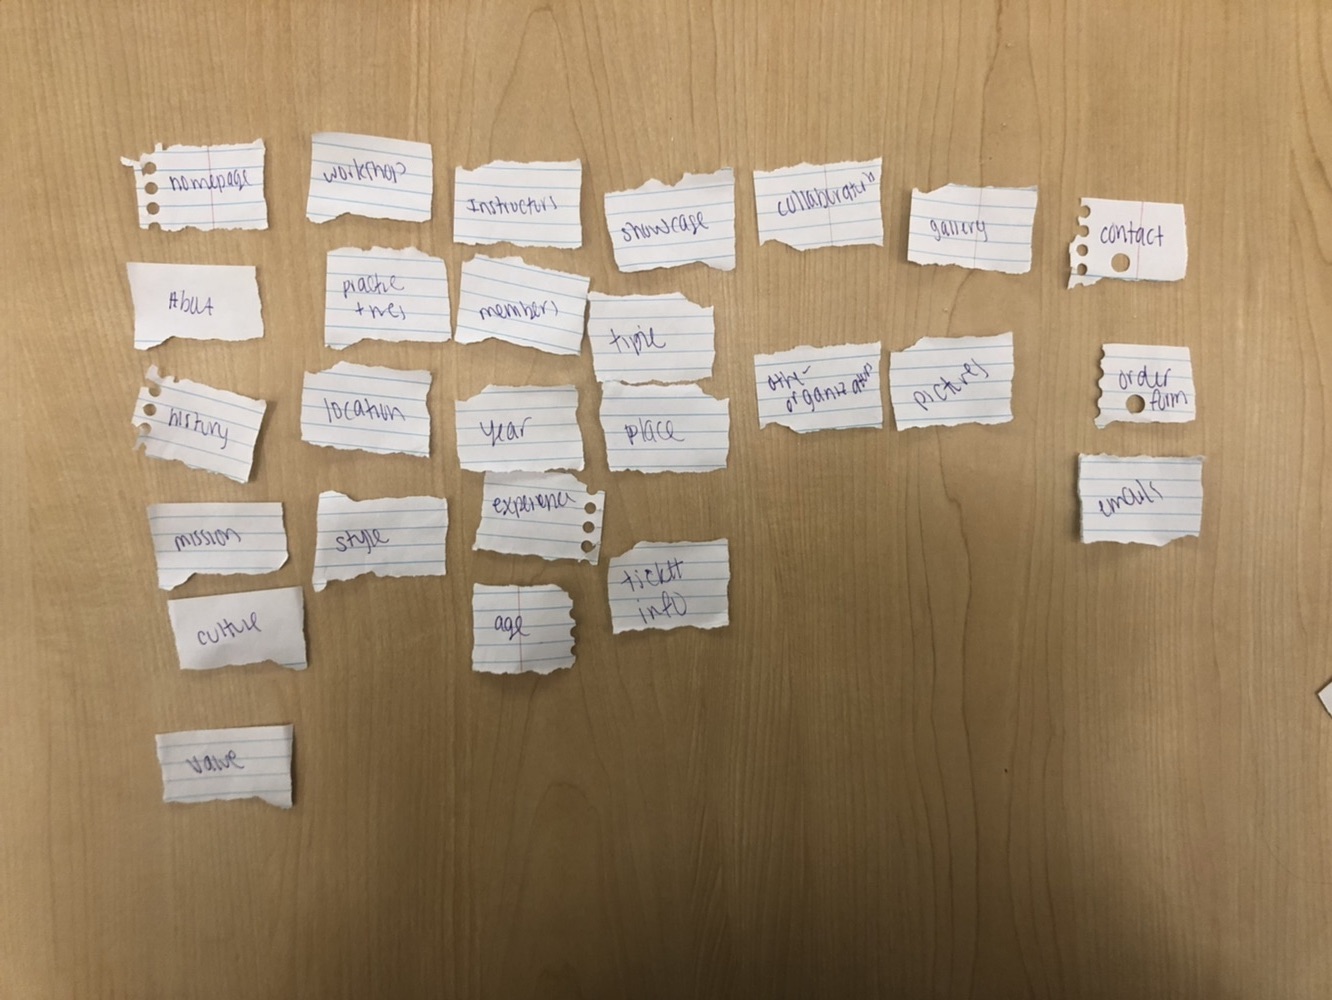 homepage
About
history
mission
culture
value
workshop
practice
times
location
style
Instructors
members
year
experience
age
showcase
time
place
ticket
info
collaboration
other
organizations
gallery
pictures
contact
order
form
emails